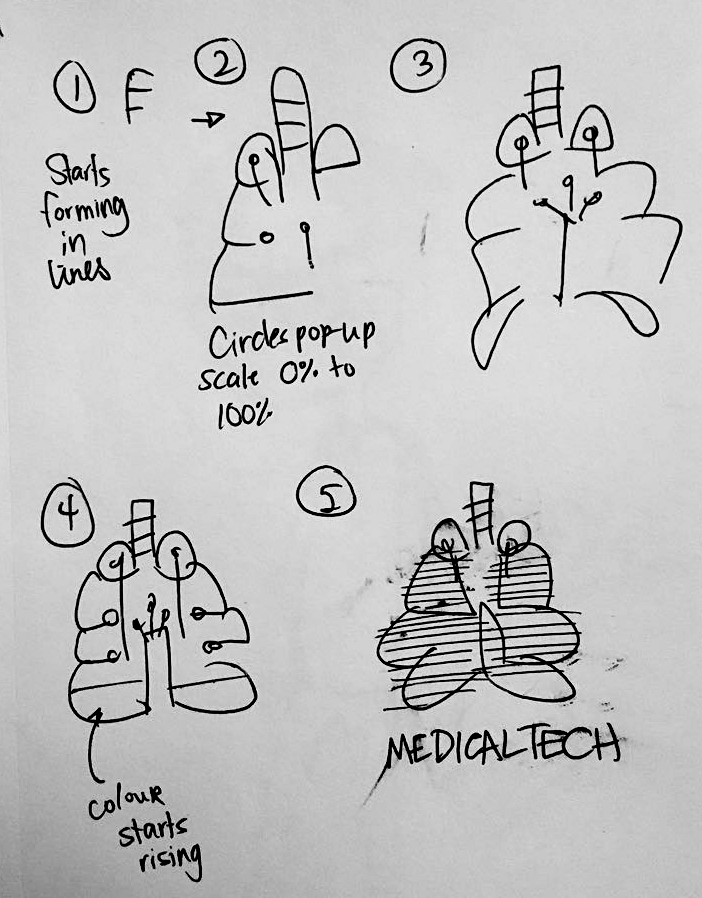 1
2
3
Starts
forming
in
lines
Circles pop-up
scale 0% to
100%
4
5
colour
starts
rising
MEDICALTECH